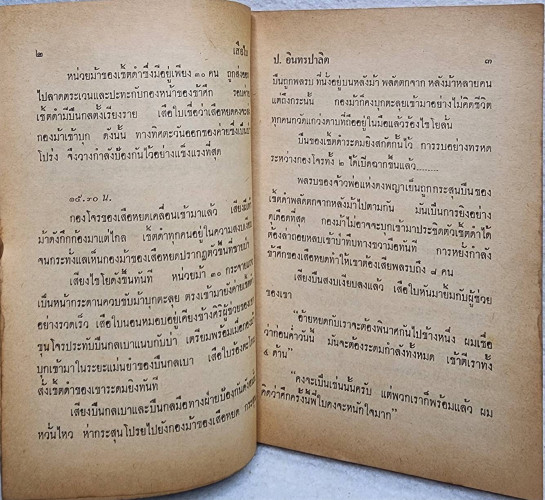 ๒ เสือใบ
หน่วยม้าของเชิ้ตดำซึ่งมีอยู่เพียง ๓๐ คน ถูกส่งออก
ไปลาดตระเวนและปะทะกับกองหน้าของข้าศึก
เชิ้ตดำมีปืนกลตั้งเรียงราย เสือใบเชื่อว่าเสือหยดคงจะ
กองม้าเข้าบุก ดังนั้น ทางทิศตะวันออกของค่ายซึ่งเป็นที่
โปร่ง จึงวางกำลังป้องกันไว้อย่างแข็งแรงที่สุด
๑๕.๓๐ น.
กองโจรของเสือหยดเคลื่อนเข้ามาแล้ว
ม้าดังกึกก้องมาแต่ไกล เชิ้ตดำทุกคนอยู่ในความสงบเงียบ
จนกระทั่งแลเห็นกองม้าของเสือหยดปรากฏตัวขึ้นที่ชายป่า
เสียงไชโยดังขึ้นทันที หน่วยม้า ๓๐ กระจายแถว
เป็นหน้ากระดานควบขับม้าบุกตะลุย ตรงเข้ามายังค่ายเชิ้ตดำ
อย่างรวดเร็ว เสือใบนอนหมอบอยู่เคียงข้างคีรีผู้ช่วยของเขา
ขุนโจรประทับปืนกลเบาแนบกับบ่า เตรียมพร้อมเมื่อกองม้า
บุกเข้ามาในระยะแม่นยำของปืนกลเบา เสือใบร้องตะโกน
สั่งเชิ้ตดำของเขาระดมยิงทันที
เสียงปืนกลเบาและปืนกลมือทางฝ่ายป้องกันดังสนั่น
หวั่นไหว ห่ากระสุนโปรยไปยังกองม้าของเสือหยด
ป. อินทรปาลิต ๓
ปืนถูกพลรบ ที่นั่งอยู่บนหลังม้า พลัดตกจาก หลังม้าหลายคน
แต่ถึงกระนั้น กองม้าก็คงบุกตะลุยเข้ามาอย่างไม่คิดชีวิต
ทุกคนกวัดแกว่งดาบที่ถืออยู่ในมือแล้วร้องไชโยลั่น
ปืนของเชิ้ตดำระดมยิงสกัดกั้นไว้ การรบอย่างทรหด
ระหว่างกองโจรทั้ง ๒ ได้เปิดฉากขึ้นแล้ว........
พลรบของจ้าวพ่อแห่งดงพญาเย็นถูกกระสุนปืนของ
เชิ้ตดำพลัดตกจากหลังม้าไปตามกัน มันเป็นการยิงอย่าง
ดุเดือดที่สุด กองม้าไม่อาจจะบุกเข้ามาประชิดตัวเชิ้ตดำได้
ต้องล่าถอยหลบเข้าป่าทึบทางขวามือทันที การหยั่งกำลัง
ข้าศึกของเสือหยดทำให้เขาต้องเสียพลรบถึง ๘ คน
เสียงปืนสงบเงียบลงแล้ว เสือใบหันมายิ้มกับผู้ช่วย
ของเขา
"อ้ายหยดกับเราจะต้องพินาศกันไปข้างหนึ่ง ผมเชื่อ
ว่าก่อนค่ำวันนี้ มันจะต้องระดมกำลังทั้งหมด เข้าตีเราทั้ง
๔ ด้าน"
"คงจะเป็นเช่นนั้นครับ แต่พวกเราก็พร้อมแล้ว ผม
คิดว่าศึกครั้งนี้พี่ใบคงจะหนักใจมาก"